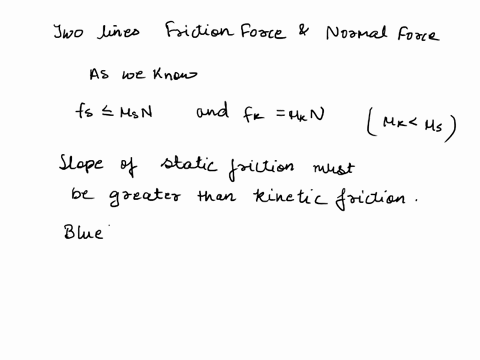 Two lines Friction Force & Normal Force
As we know
fs ≤ μsN and fk = μkN (μk < μs)
Slope of static friction must
be greater than kinetic friction.
Blue